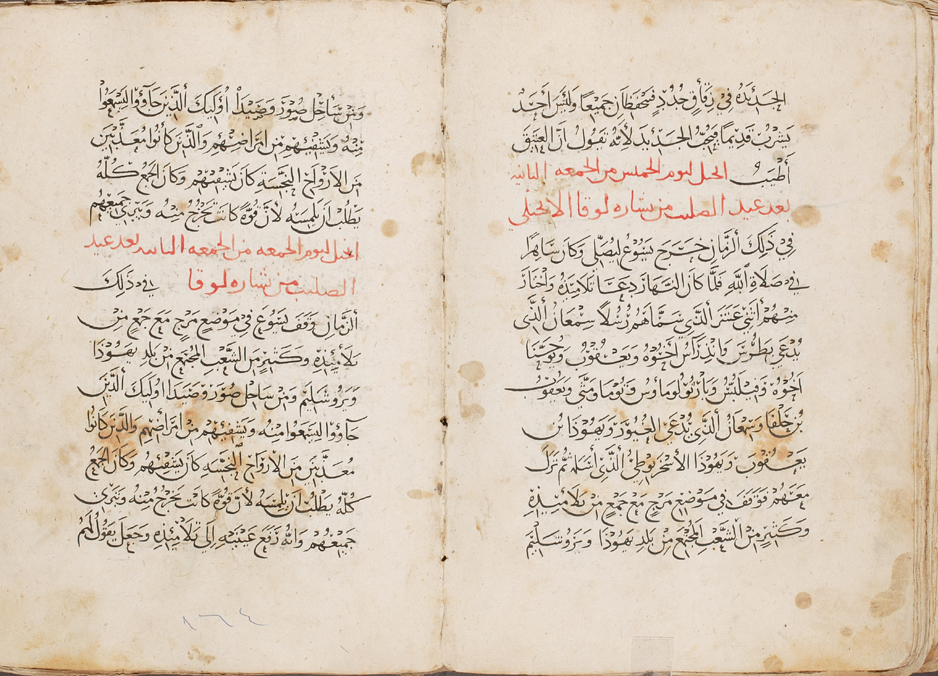 الجديده في زقاق جدد فتحفظان جميعا وليس احد
يشرب قديما فيحب الجديد لانه يقول ان العتيق
اطيب انجيل ليوم الخميس من الجمعه الثانيه
بعد عيد الصليب من بشاره لوقا الانجيلي
في ذلك الزمان خرج يسوع ليصلي وكان ساهرا
في صلاة الله فلما كان النهار دعا تلاميذه واختار
منهم اثني عشر الذي سماهم رسلا سمعان الذي
يدعى بطرس واندراس اخوه ويعقوب ويوحنا
اخوه وفيلبس وبارتولوماوس وتوما ومتي ويعقوب
بن حلفا وسمعان الذي يدعى الغيور ويهوذا بن
يعقوب ويهوذا الاسخريوطي الذي اسلمه ثم نزل
معهم فوقف في موضع مرج مع جمع من تلاميذه
وكثير من الشعب المجتمع من بلد يهوذا ويروشليم
ومن ساحل صور وصيدا اوليك الذين جاؤوا ليسمعوا
منه ويشفيهم من امراضهم والذين كانوا معذبين
من الارواح النجسة كان يشفيهم وكان الجمع كله
يطلب ان يلمسه لان قوة كانت تخرج منه ويبري جميعهم
انجيل ليوم الجمعه من الجمعه الثانيه بعد عيد
الصليب من بشاره لوقا في ذلك
الزمان وقف يسوع في موضع مرج مع جمع من
تلاميذه وكثير من الشعب المجتمع من بلد يهوذا
ويروشليم ومن ساحل صور وصيدا اوليك الذين
جاؤوا ليسمعوا منه ويشفيهم من امراضهم والذين كانوا
معذبين من الارواح النجسه كان يشفيهم وكان الجمع
كله يطلب ان يلمسه لان قوة كانت تخرج منه وتبري
جميعهم وانه رفع عينيه الى تلاميذه وجعل يقول لهم